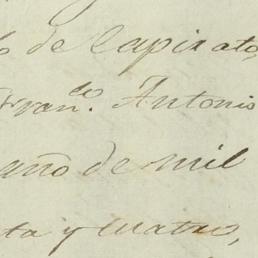 de Capirato,
Fran.co Antonio
año de mil
ta y cuatro,